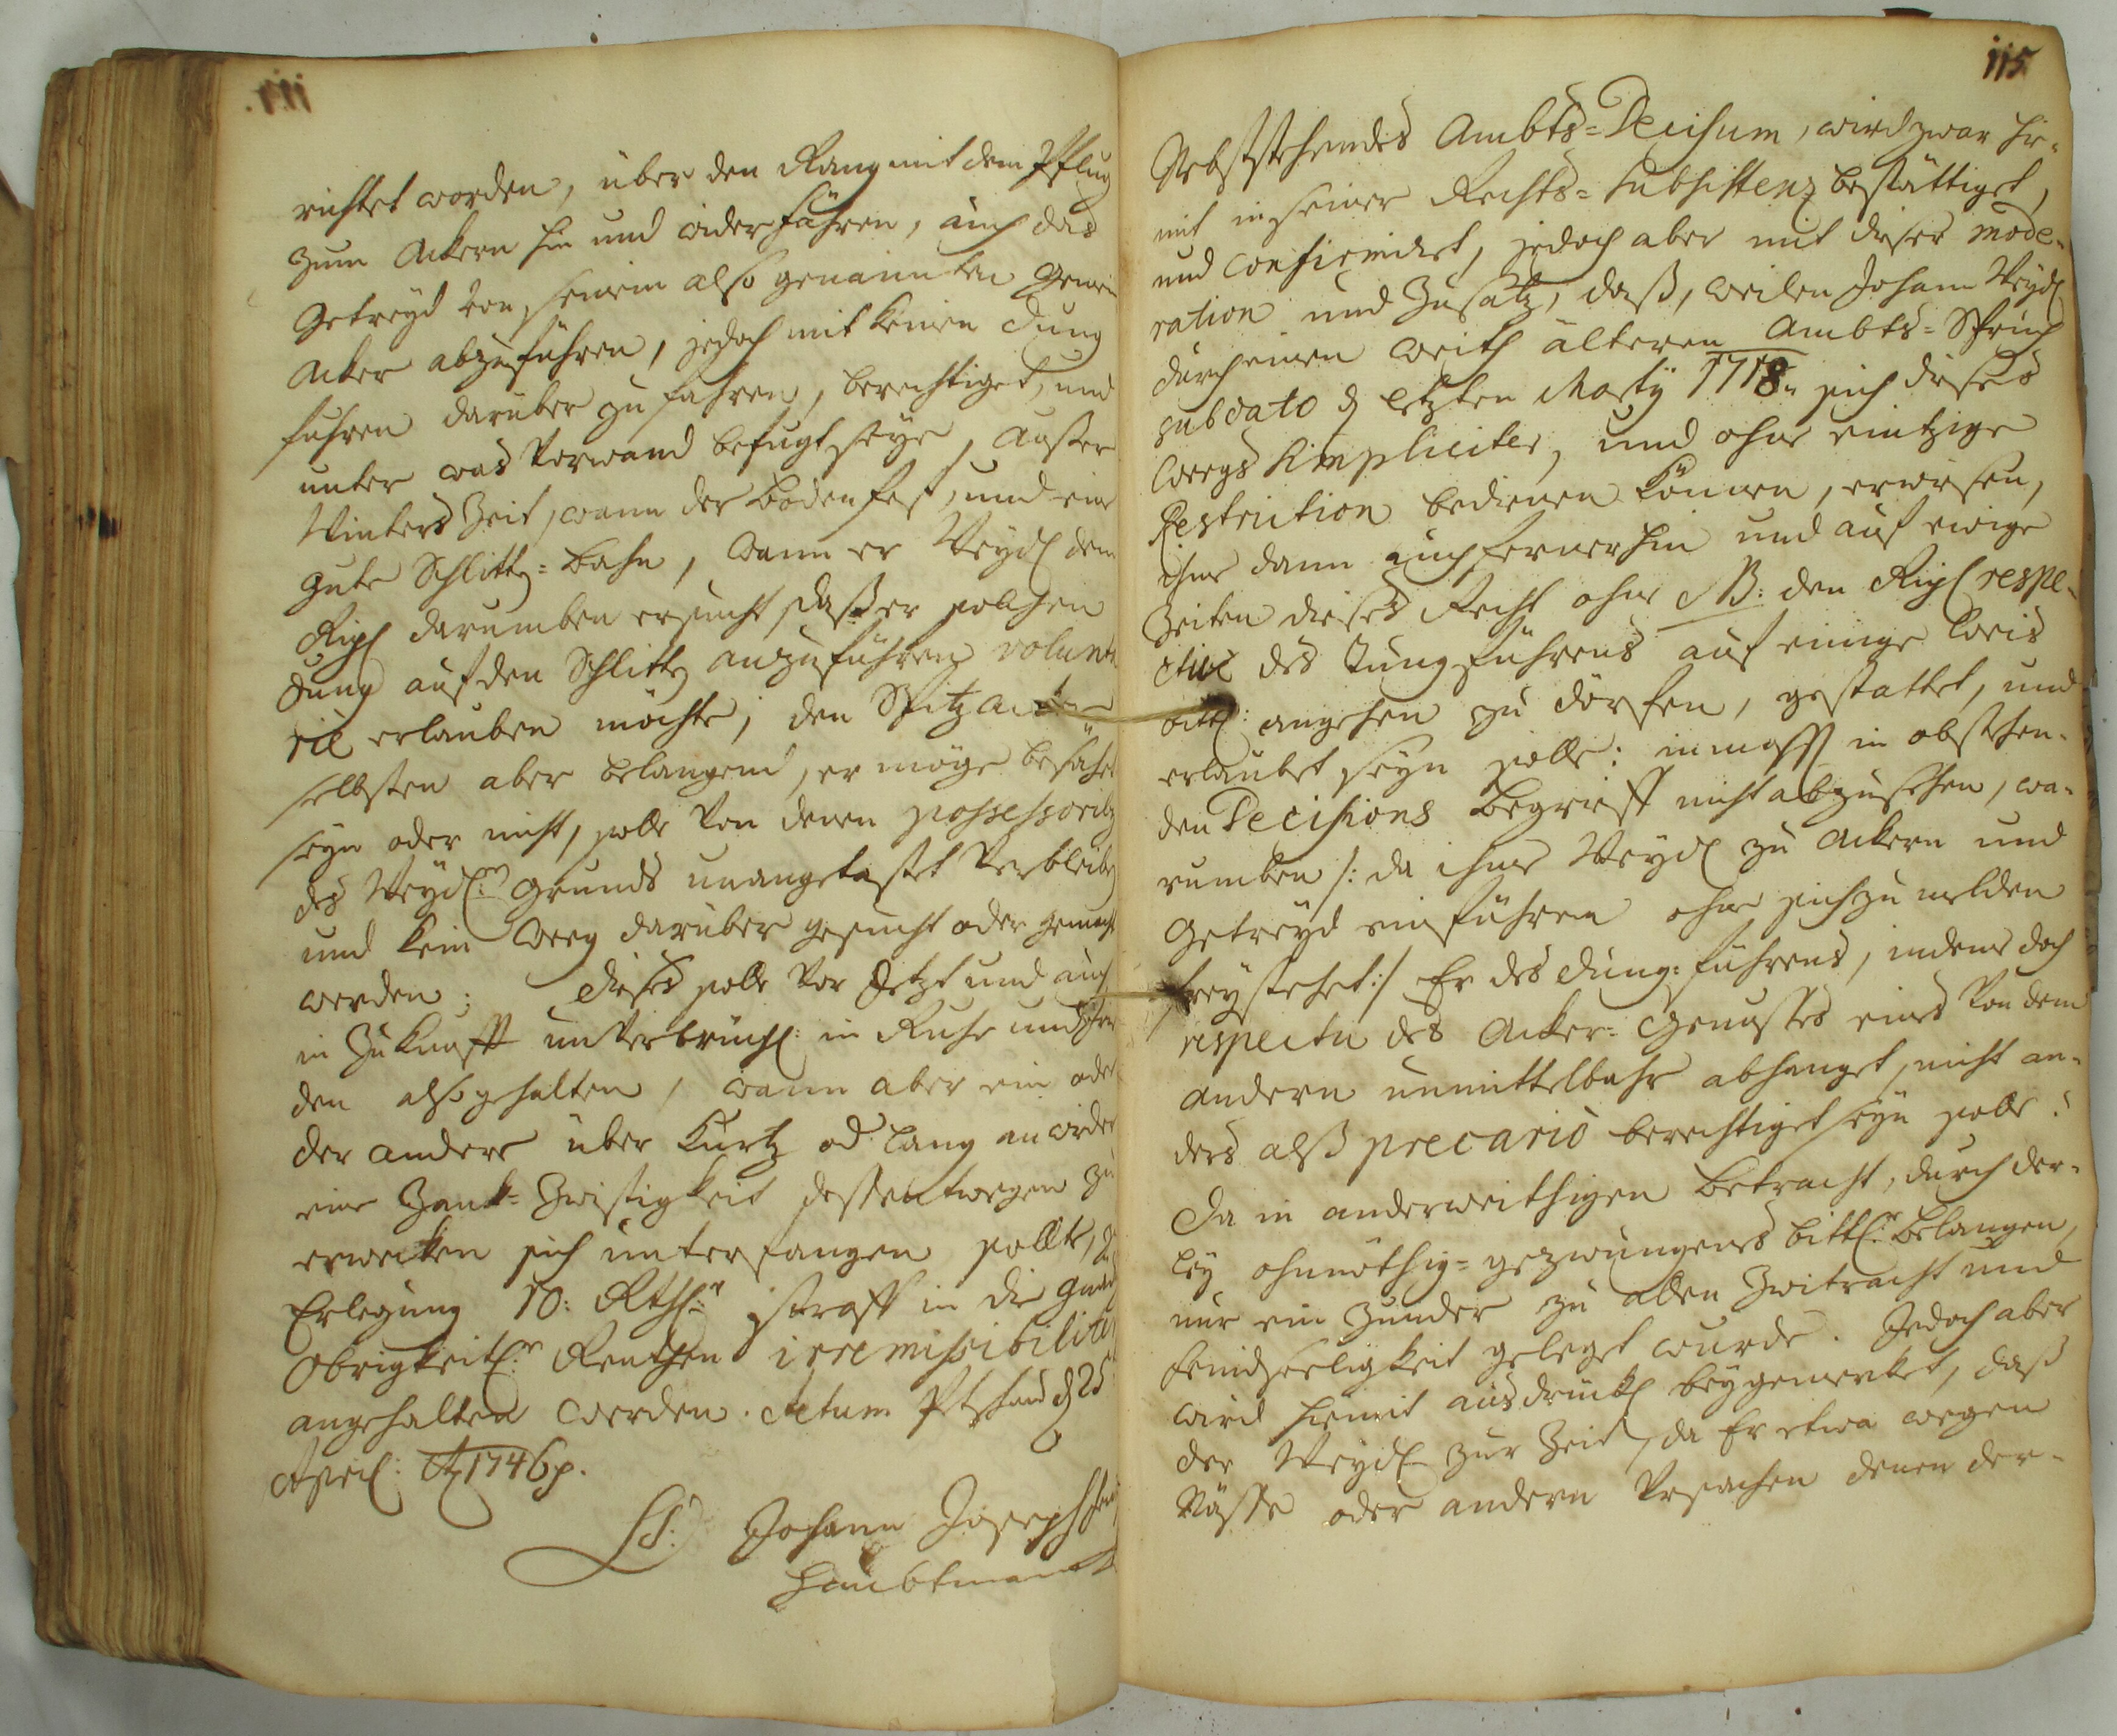 richtet worden, über den Rang mit dem Pflug
zum Ackern hin und wider führen, auch das
Getreyd von seinem also genannten Gemein
Acker abzuführen, jedoch mit keinen Dung
fuhren darüber zu fahren, berechtiget, und
unter was Vorwand befugt seye, Ausser
Winters Zeit, wann der Boden fest, und eine
gute Schlitt=Bahn, wann er Weydl dem
Ripl darumben ersucht, dass er solchen
Dung auf den Schlitt auszuführen volunta
rie erlauben möchte; den Spitz Acker
selbsten aber belangend, er möge besähet
seyn oder nicht, solle von denen possessoribus
des Weydl: Grunds unangetastet verbleiben
und kein Weeg darüber gesucht oder gemacht
werden; dieses solle vor jetzt und auch
in Zukunfft unverbrüchl: in Ruhe und Frie
den also gehalten, wann aber ein oder
der andere über kurtz od. lang anwider
eine Zank=Zwistigkeit dessentwegen zu
erwecken sich unterfangen sollte, zu
Erlegung 10: Rthl: straff in die Gnäd
Obrigkeitl: Renthen irremissibiliter
angehalten werden. Actum den 25
April: Ao 1746 p.
LS: Johann Joseph
Haubtmann
115
Nebststehendes Ambts=Decisum, wird zwar hie=
mit in seiner Rechts=Subsistenz bestättiget,
und confirmiret, jedoch aber mit dieser mode=
ration und Zusatz, daß, weilen Johann Weydl
durch einen weith älteren Ambts=Spruch
sub dato den letzten Marty 1718. sich dieses
Weegs simpliciter, und ohne eintzige
Restriction bedienen können, erwiesen,
ihme dann auch fernerhin und auf ewige
Zeiten dieses Recht ohne NB: den Ripl respe=
ctive des Dungführens auf einige Weis
bittl: angehen zu dörfen, gestattet, und
erlaubet seyn solle: inmassen in obstehen=
den Decisions Begrieff nicht abzusehen, wa=
rumben /: da ihme Weydl zu Ackern und
Getreyd einführen ohne sich zu melden
freystehet :/ Er des Dung=führens, indeme doch
respectu des Acker=Genusses eines von dem
andern unmittelbahr abhanget, nicht an=
ders alß precario berechtiget seyn solle:
Da in anderweithigen Betracht, durch der=
ley ohnnöthig=gezwungenes bittl: belangen,
nur ein Zunder zu allen Zwitracht und
Feindseeligkeit geleget wurde. Jedoch aber
wird hiemit ausdrückl beygemerket, daß
der Weydl zur Zeit, da Er etwa wegen
Nässe oder andern Ursachen denen der=